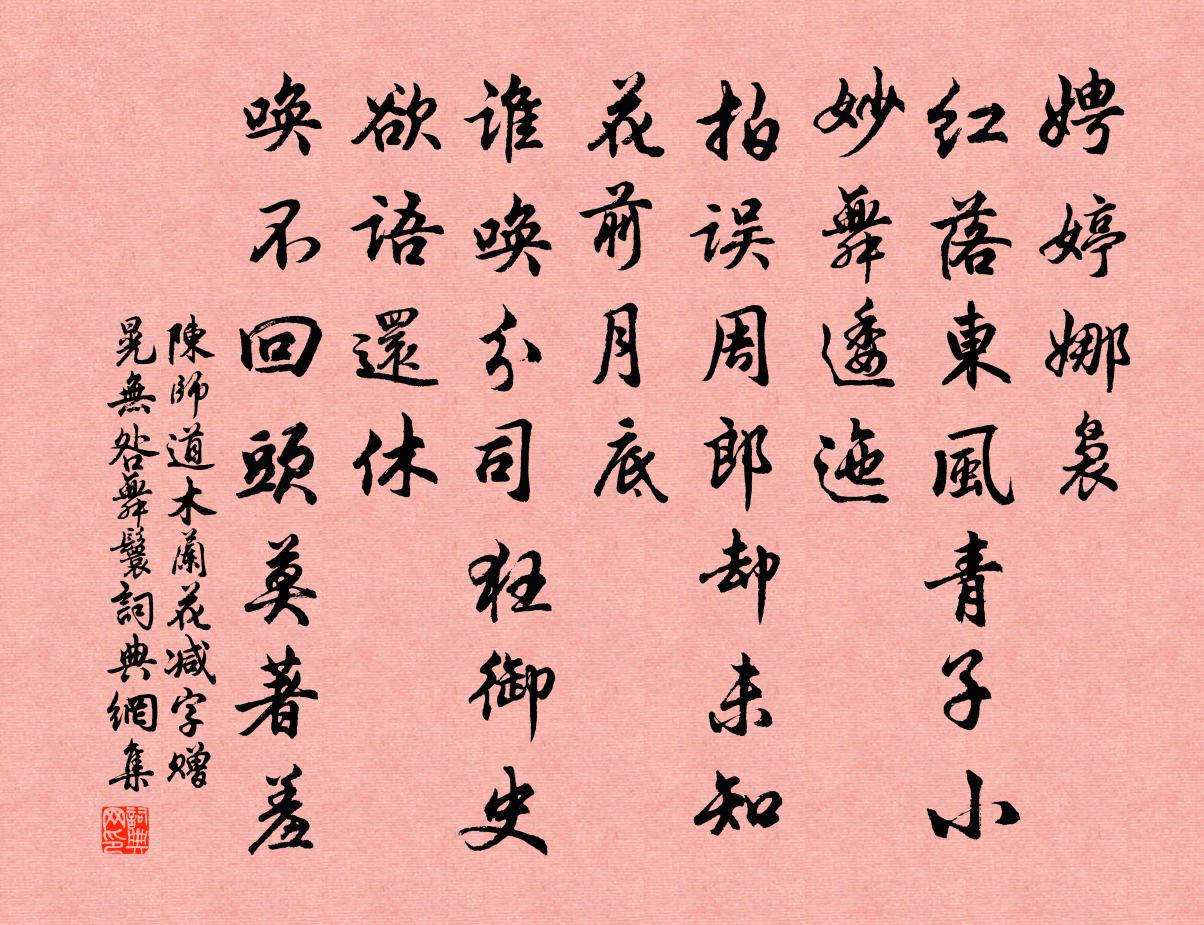 娉婷娜袅
红落東風青子小
妙舞逶迤
拍误周郎却未知
花前月底
谁唤分司狂御史
欲語還休
唤不回頭莫著羞
陳師道木蘭花减字赠
晃無咎舞鬟詞典網集
詞典网印